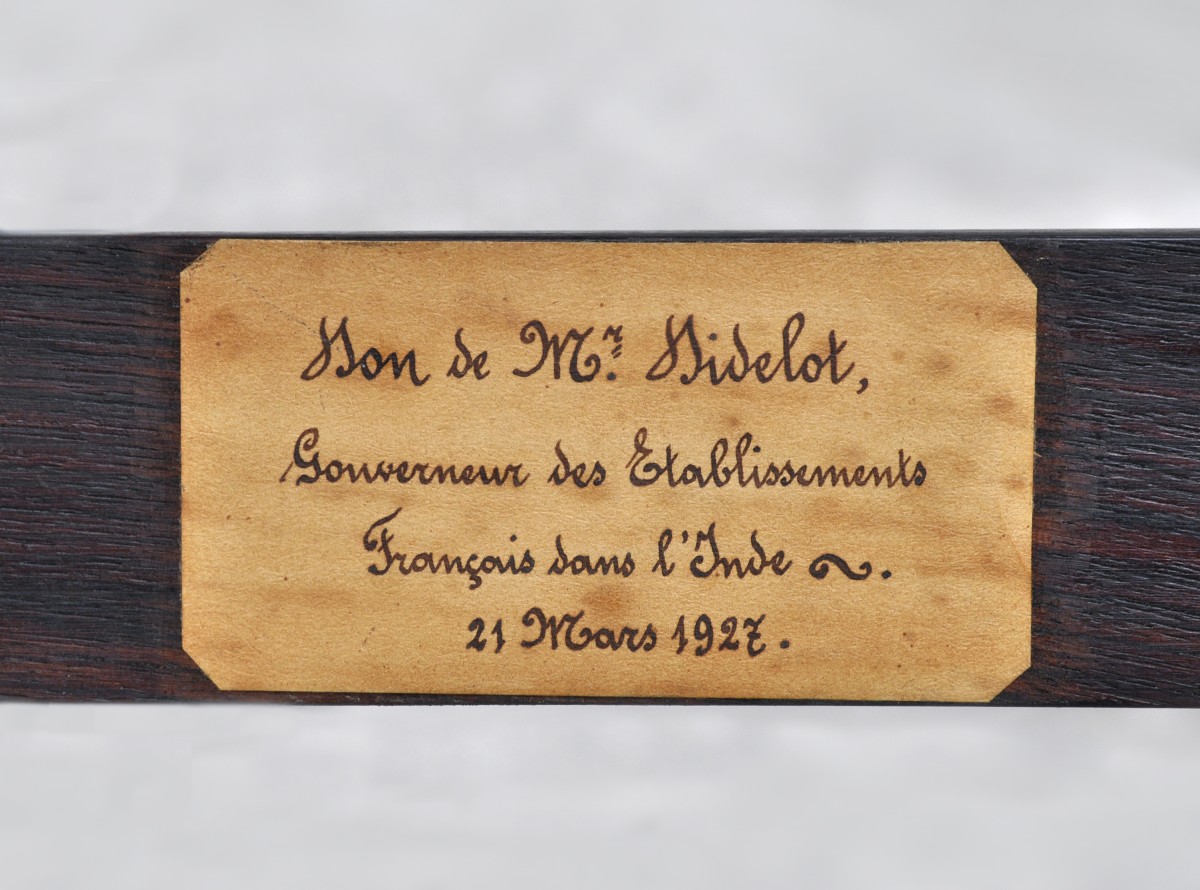 Don de Mr. Didelot,
Gouverneur des Etablissements
Français dans l'Inde ~.
21 Mars 1927.